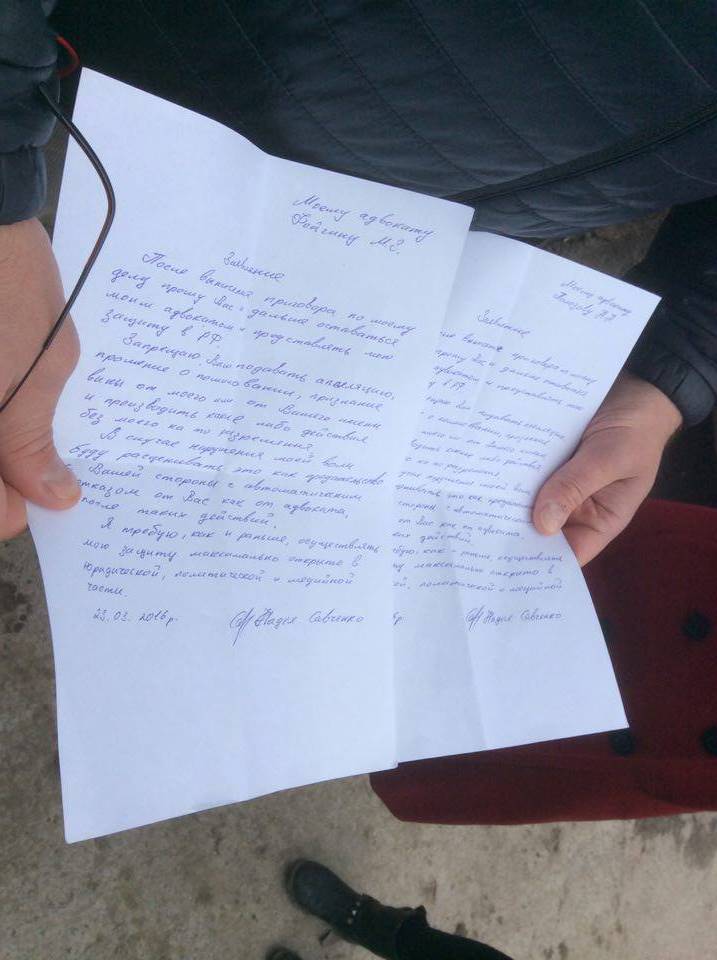 Моему адвокату
Фейгину М.З.
Заявление
После вынесения приговора по моему
делу прошу Вас и дальше оставаться
моим адвокатом и представлять мою
защиту в РФ.
Запрещаю Вам подавать апеляцию,
прошение о помиловании, признание
вины от моего или от Вашего имени
и производить какие либо действия
без моего на то разрешения.
В случае нарушения моей воли
буду расценивать это как предательство
с Вашей стороны с автоматическим
отказом от Вас как от адвоката,
после таких действий.
Я требую, как и раньше, осуществлять
мою защиту максимально открыто в
юридической, политической и медийной
части.
23.03.2016 г. Надія Савченко
Моему адвокату
Заявление
приговора по моему
прошу Вас и дальше оставаться
адвокатом и представлять мою
в РФ
Вам подавать апеляцию,
о помиловании, признание
моего или от Вашего имени
какие либо действия
на то разрешения.
нарушения моей воли
это как
стороны с автоматическим
от Вас как от адвоката,
действий.
как и раньше, осуществлять
максимально открыто в
политической и медийной
Надія Савченко